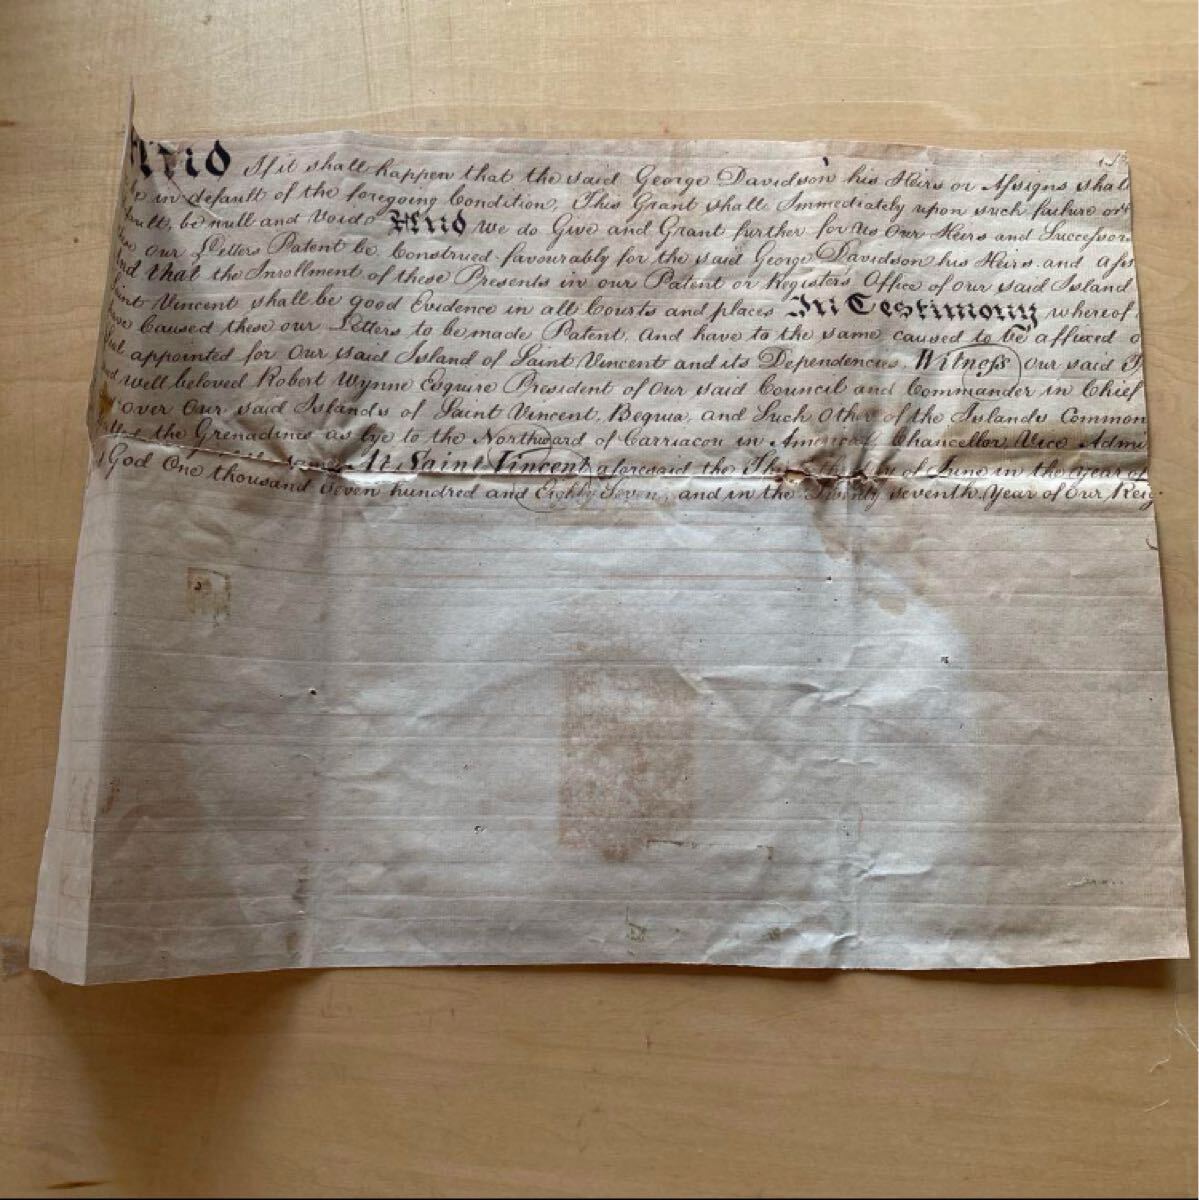 And If it shall happen that the said George Davidson his Heirs or Assigns shall
be in default of the foregoing Condition, This Grant shall Immediately upon such failure or
be null and Void And we do Give and Grant further for us Our Heirs and Successors
our Letters Patent be Construed favourably for the said George Davidson his Heirs and Ass
And that the Inrollment of these Presents in our Patent or Registers Office of our said Island
Saint Vincent shall be good Evidence in all Courts and places In Testimony whereof
have Caused these our Letters to be made Patent, and have to the same caused to be affixed
Seal appointed for Our said Island of Saint Vincent and its Dependencies, Witness Our said
and well beloved Robert Wynne Esquire President of Our said Council and Commander in Chief
over Our said Islands of Saint Vincent, Bequia, and Such Other of the Islands Common
the Grenadines as lye to the Northward of Carriacou in America, Chancellor Vice Admi
At Saint Vincent aforesaid the day of June in the Year of
God One thousand Seven hundred and Eighty Seven, and in the Twenty seventh Year of Our Reig